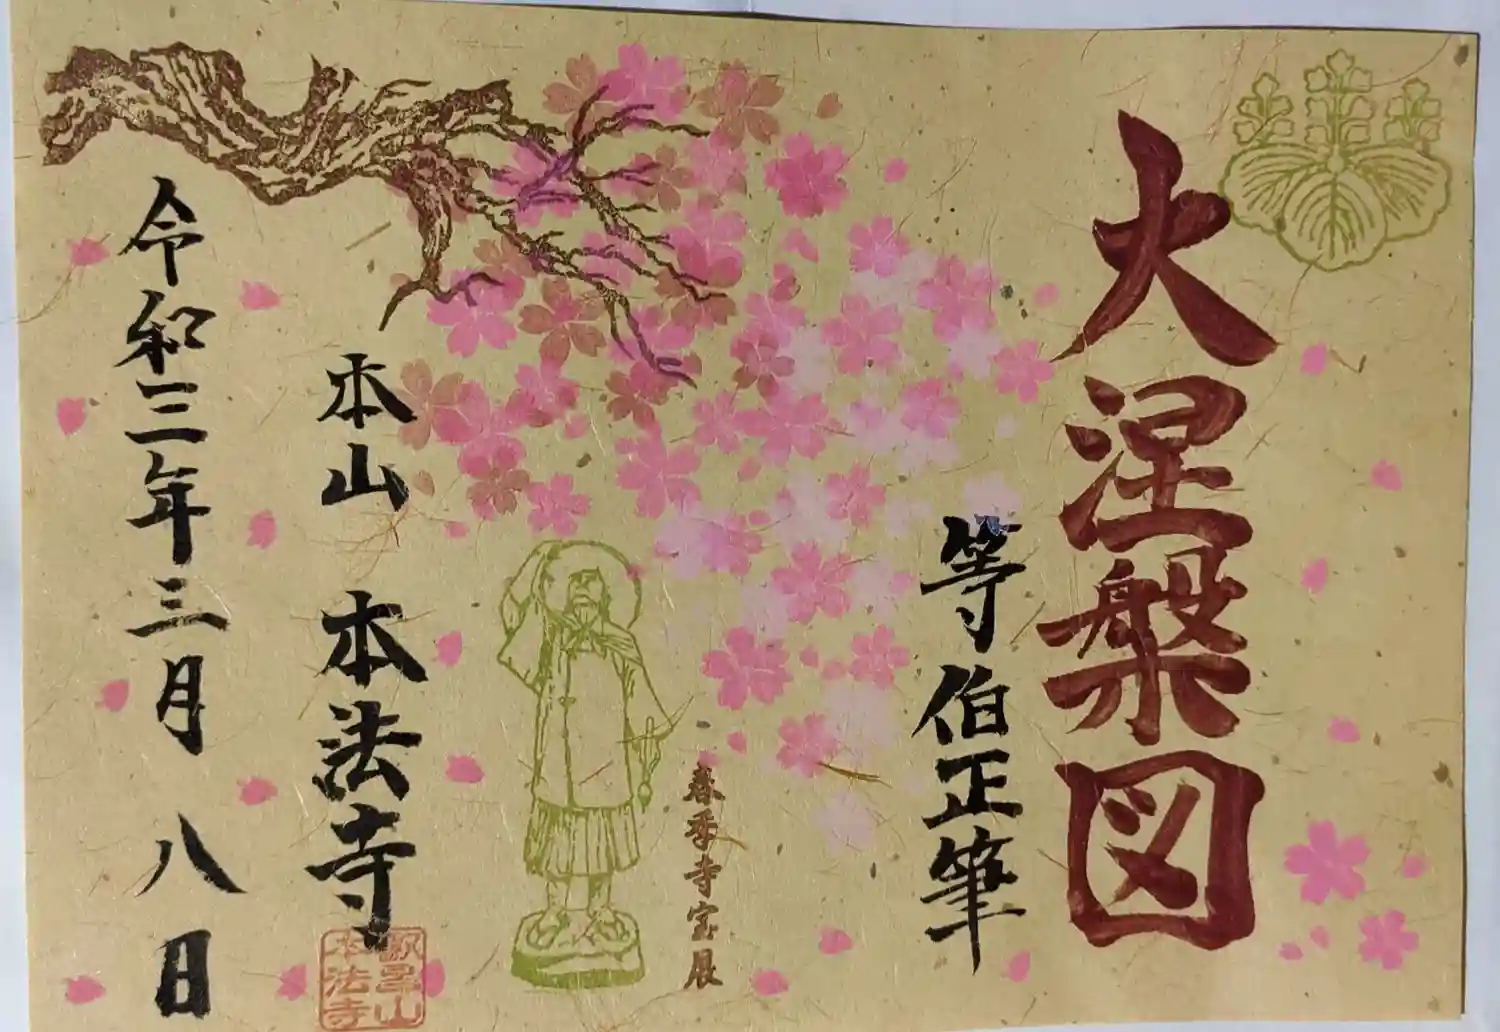 大涅槃図
等伯正筆
春季寺宝展
本山 本法寺
叡昌山
本法寺
令和三年三月八日